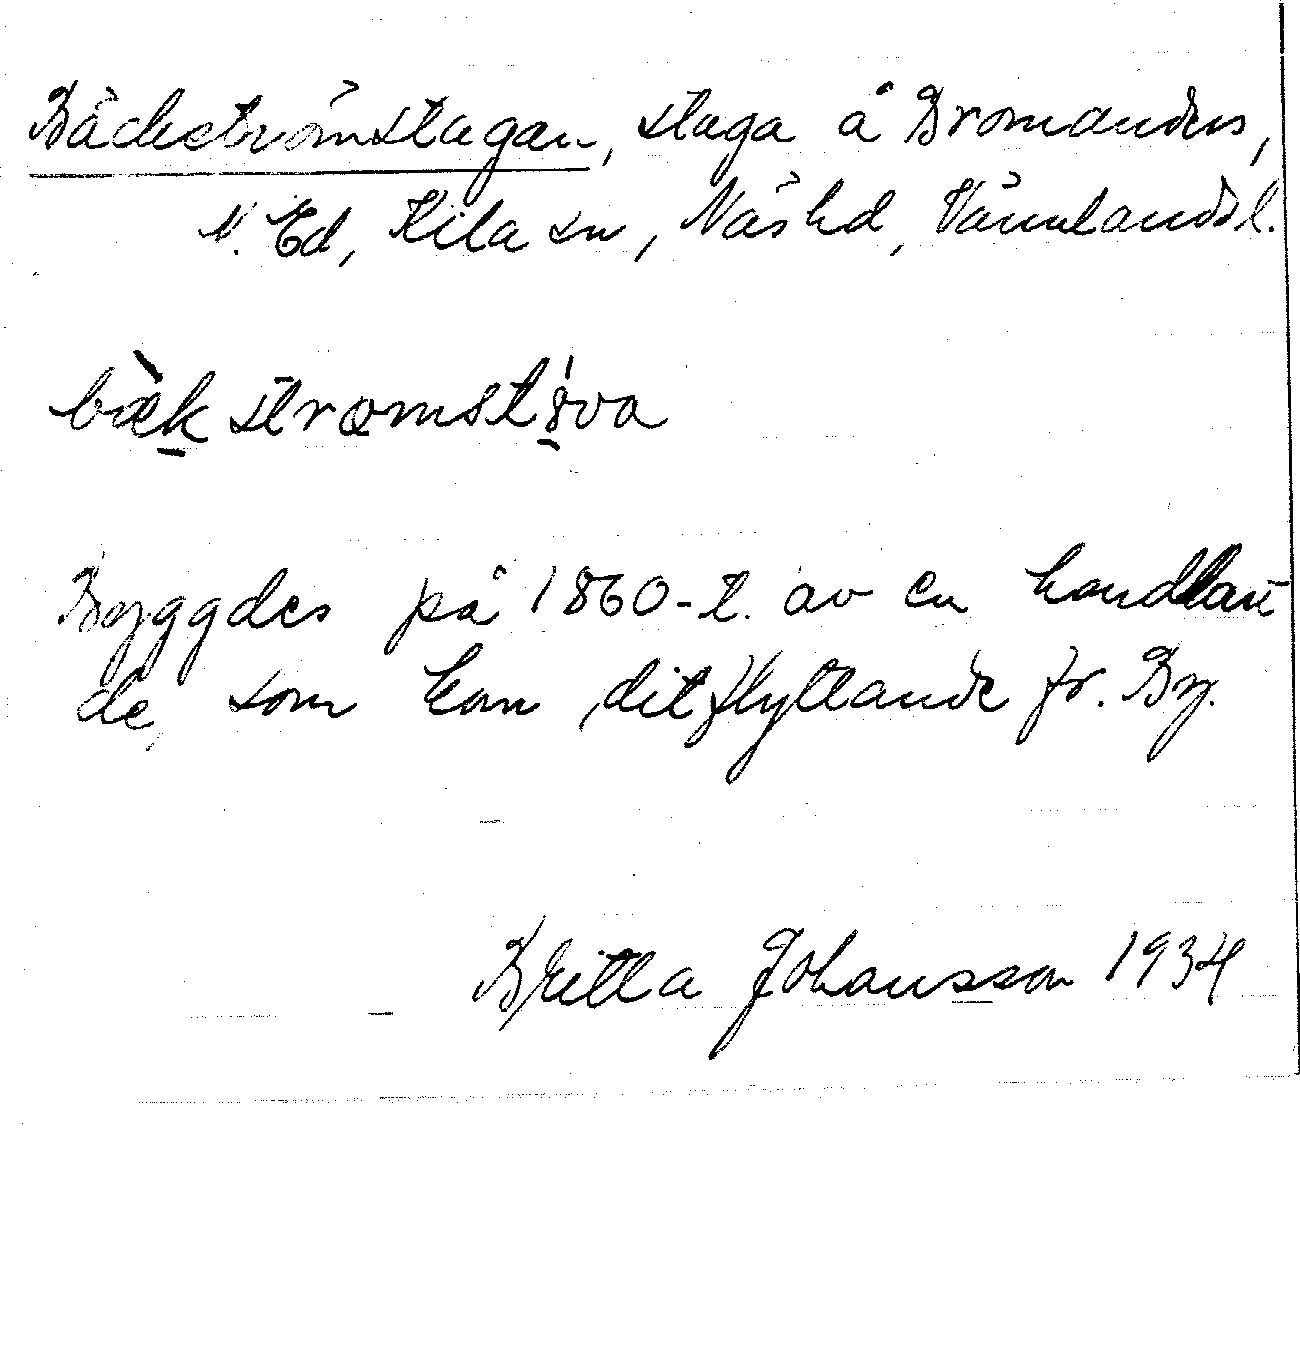 Bäckströmstugan, stuga å Bromanders,
N. Ed, Kila sn, Näs hd, Värmlands l.
bækstrømstöva
Byggdes på 1860-t. av en handlan-
de, som kom ditflyttande fr. By.
Britta Johansson 1934